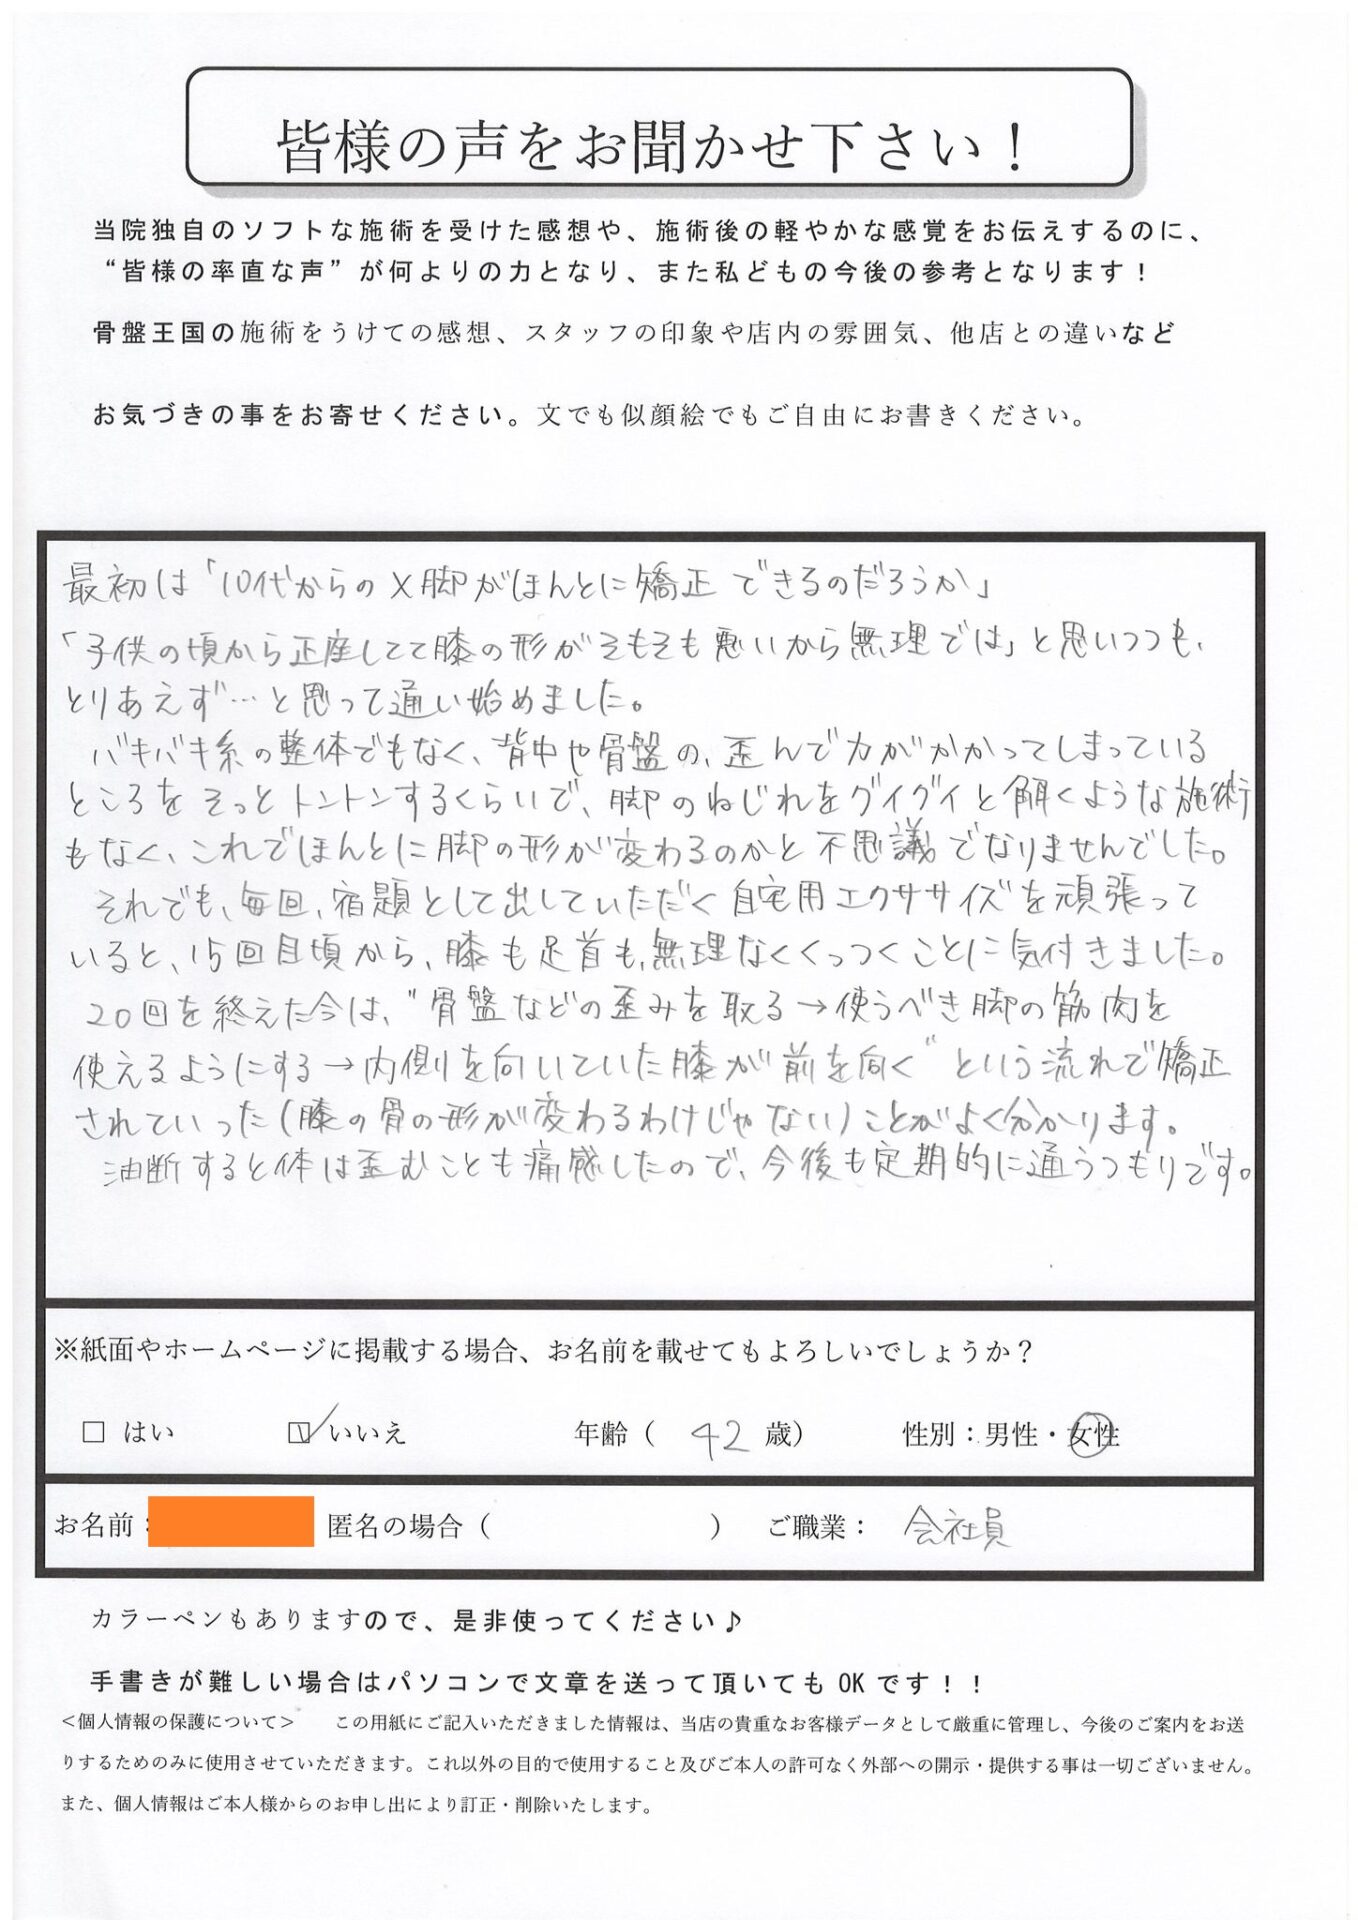 皆様の声をお聞かせ下さい！
当院独自のソフトな施術を受けた感想や、施術後の軽やかな感覚をお伝えするのに、
“皆様の率直な声”が何よりの力となり、また私どもの今後の参考となります！
骨盤王国の施術をうけての感想、スタッフの印象や店内の雰囲気、他店との違いなど
お気づきの事をお寄せください。文でも似顔絵でもご自由にお書きください。
最初は「10代からのX脚がほんとに矯正できるのだろうか」
「子供の頃から正座してて膝の形がそもそも悪いから無理では」と思いつつも、
とりあえず…と思って通い始めました。
バキバキ系の整体でもなく、背中や骨盤の、歪んで力がかかってしまっている
ところをそっとトントンするくらいで、脚のねじれをグイグイと解くような施術
もなく、これでほんとに脚の形が変わるのかと不思議でなりませんでした。
それでも、毎回、宿題として出していただく自宅用エクササイズを頑張って
いると、15回目頃から、膝も足首も、無理なくくっつくことに気付きました。
20回を終えた今は、“骨盤などの歪みを取る→使うべき脚の筋肉を
使えるようにする→内側を向いていた膝が前を向く”という流れで矯正
されていった(膝の骨の形が変わるわけじゃない)ことがよく分かります。
油断すると体は歪むことも痛感したので、今後も定期的に通うつもりです。
※紙面やホームページに掲載する場合、お名前を載せてもよろしいでしょうか？
□ はい ☑ いいえ 年齢（ 42 歳） 性別：男性・女性
お名前： 匿名の場合（ ） ご職業： 会社員
カラーペンもありますので、是非使ってください♪
手書きが難しい場合はパソコンで文章を送って頂いてもOKです！！
＜個人情報の保護について＞ この用紙にご記入いただきました情報は、当店の貴重なお客様データとして厳重に管理し、今後のご案内をお送
りするためのみに使用させていただきます。これ以外の目的で使用すること及びご本人の許可なく外部への開示・提供する事は一切ございません。
また、個人情報はご本人様からのお申し出により訂正・削除いたします。